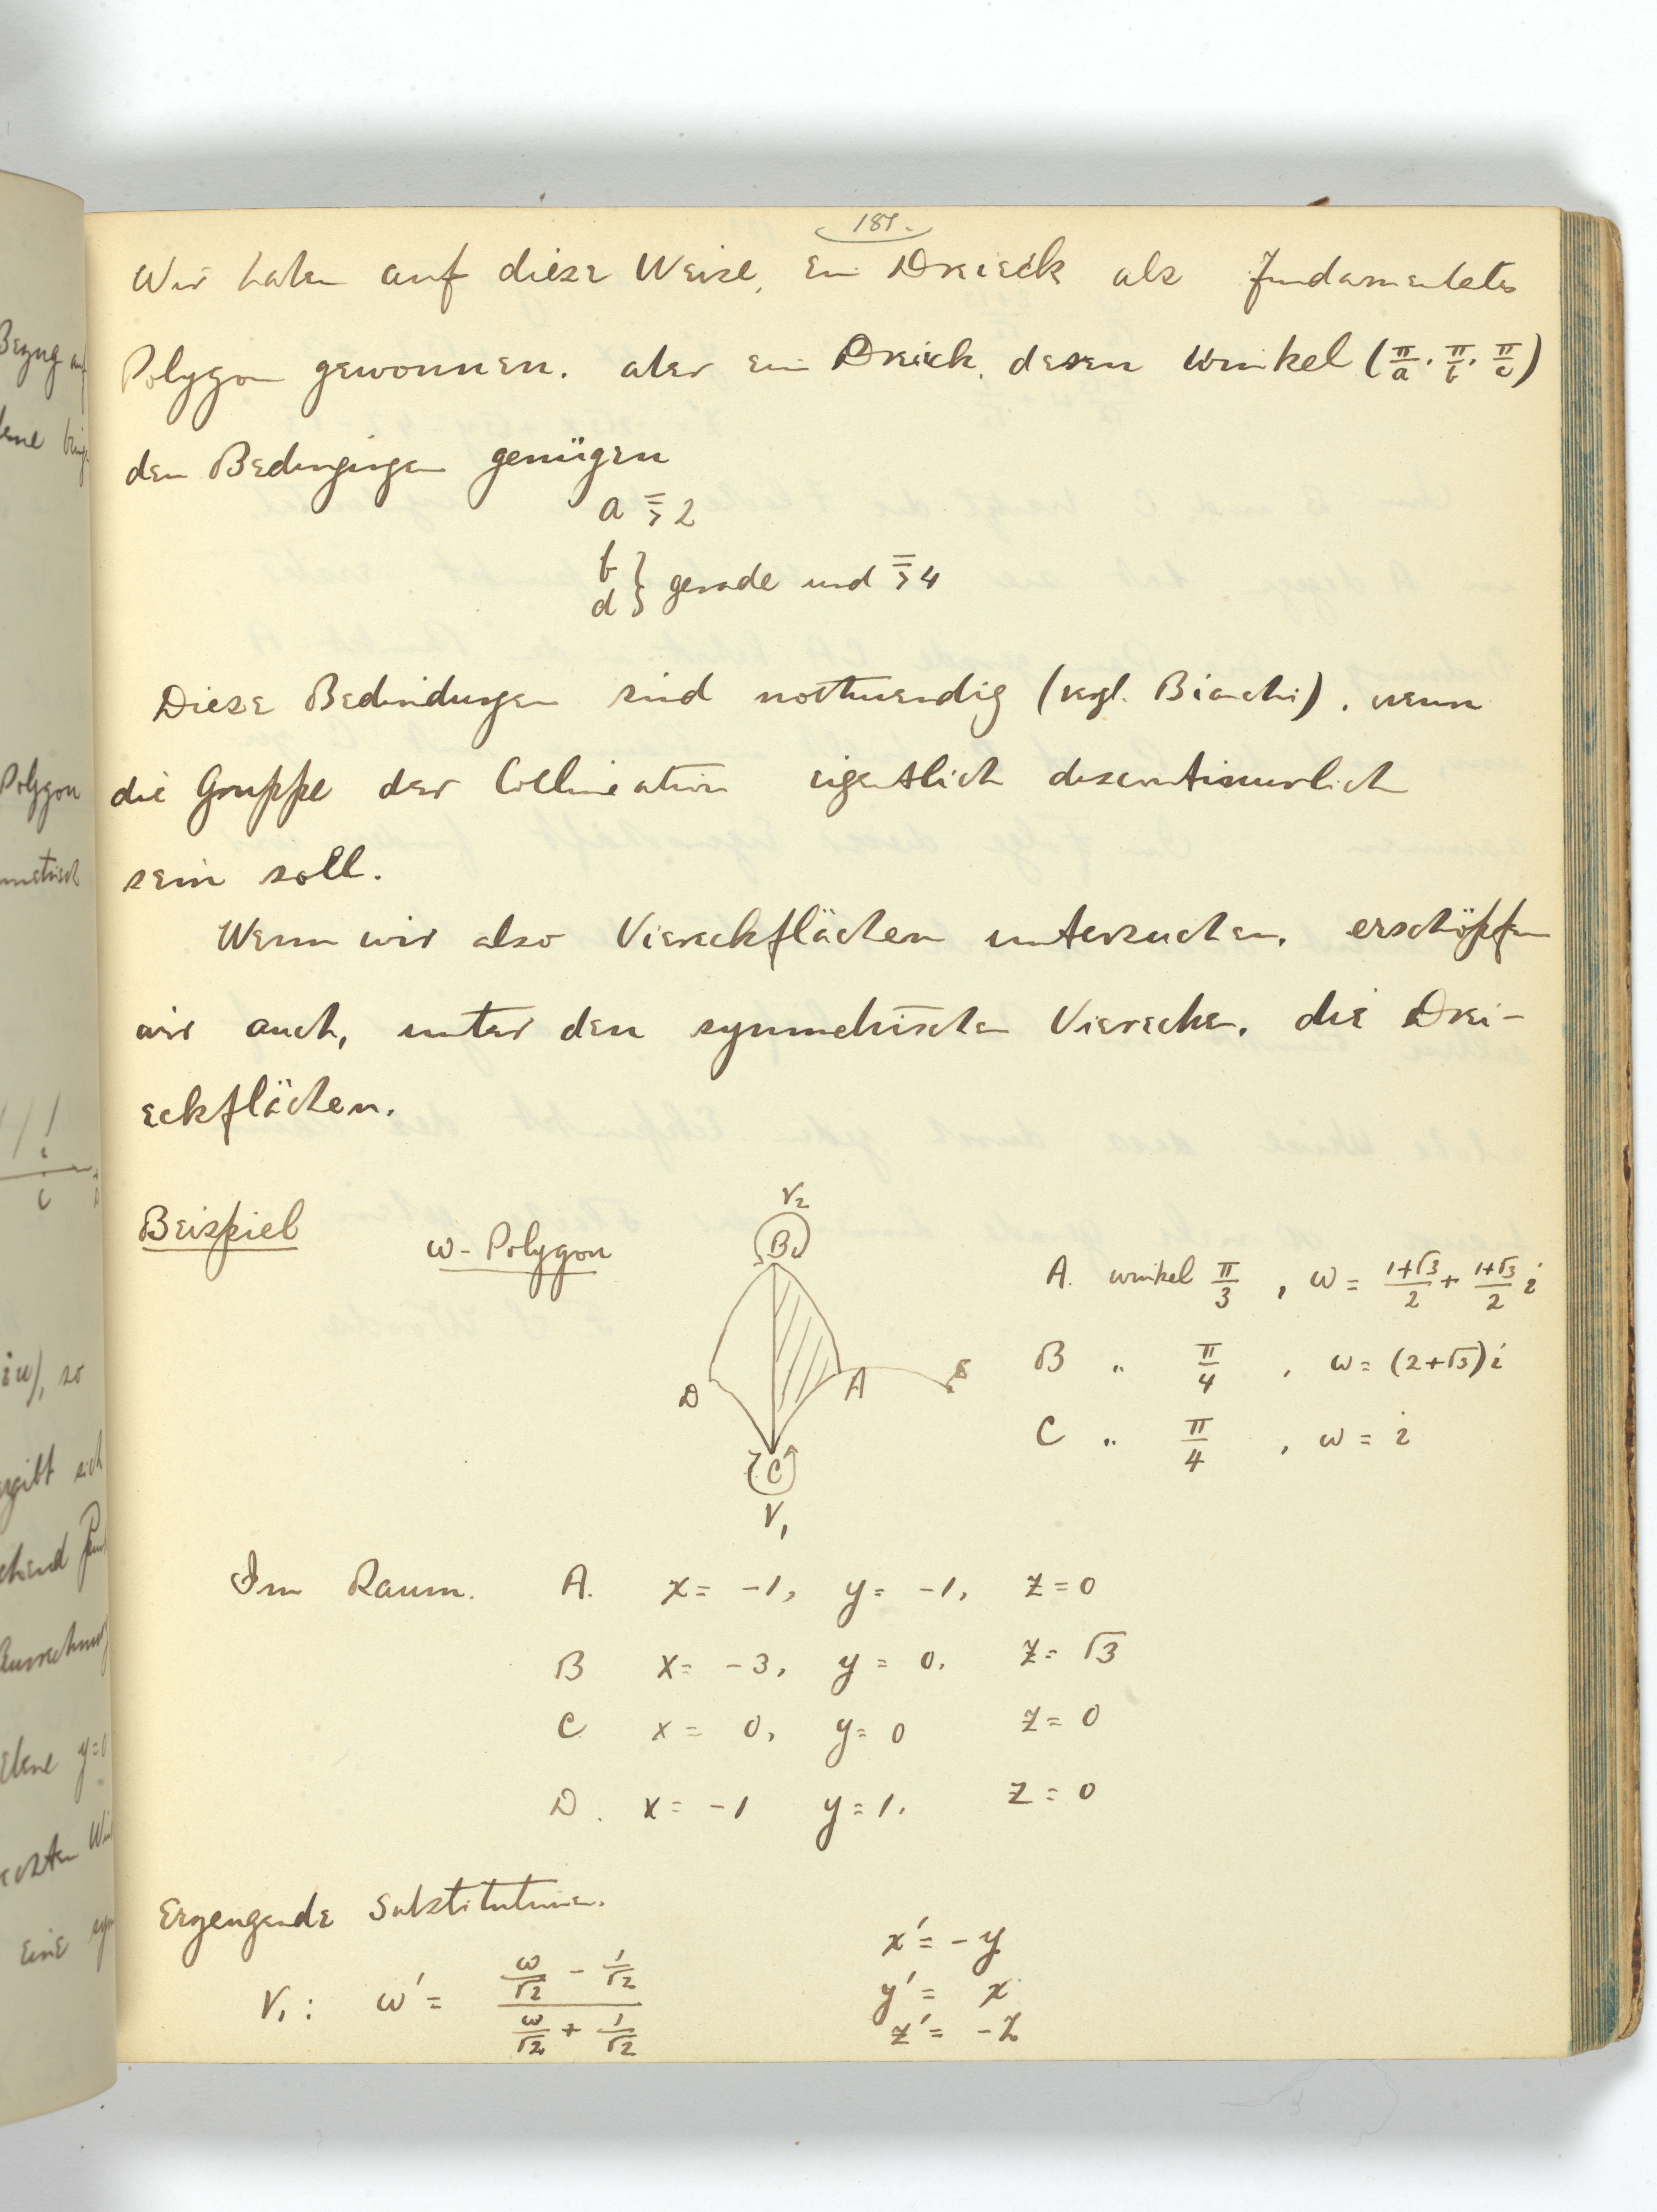 181.
Wir haben auf diese Weise, ein Dreieck als fundamentales
Polygon gewonnen. aber ein Dreieck, dessen Winkel (π/a, π/b, π/c)
den Bedingungen genügen
a ≧ 2
b
d } gerade und ≧ 4
Diese Bedindungen sind nothwendig (vgl. Bianchi), wenn
die Gruppe der Collineation eigentlich discontinuirlich
sein soll.
Wenn wir also Viereckflächen untersuchen, erschöpfen
wir auch, unter den symmetrischen Vierecken, die Drei-
eckflächen.
Beispiel ω-Polygon
V₂
B
D A B
C
V₁
A. winkel π/3, ω = (1+√3)/2 + (1+√3)/2 i
B " π/4, ω = (2+√3)i
C " π/4, ω = i
Im Raum. A. x = -1, y = -1, z = 0
B x = -3, y = 0, z = √3
C x = 0, y = 0 z = 0
D. x = -1 y = 1, z = 0
Erzeugende Substitutionen.
V₁: ω' = (ω/√2 - 1/√2)/(ω/√2 + 1/√2)
x' = -y
y' = x
z' = -z
Bezug auf
Polygon
iω), so
ergibt sich
Ebene y=0
eine